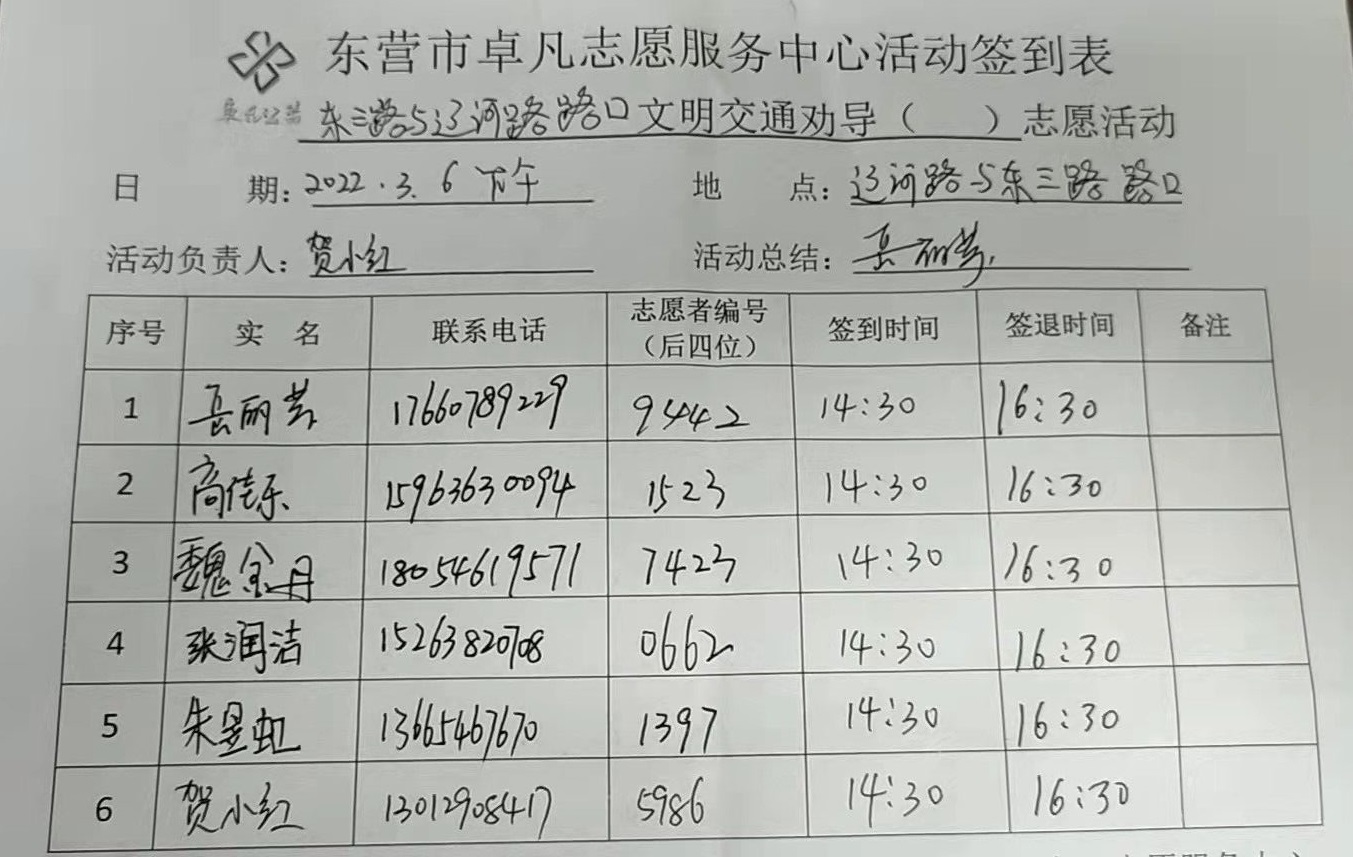 东营市卓凡志愿服务中心活动签到表
卓凡公益 东三路与辽河路路口文明交通劝导（ ）志愿活动
日 期：2022.3.6 下午 地 点：辽河路与东三路路口
活动负责人：贺小红 活动总结：岳丽芳
序号 实 名 联系电话 志愿者编号（后四位） 签到时间 签退时间 备注
1 岳丽芳 17660789229 9442 14:30 16:30
2 高佳乐 15963630094 1523 14:30 16:30
3 魏金丹 18054619571 7423 14:30 16:30
4 张润洁 15263820708 0662 14:30 16:30
5 朱昱虹 13665467670 1397 14:30 16:30
6 贺小红 13012908417 5986 14:30 16:30